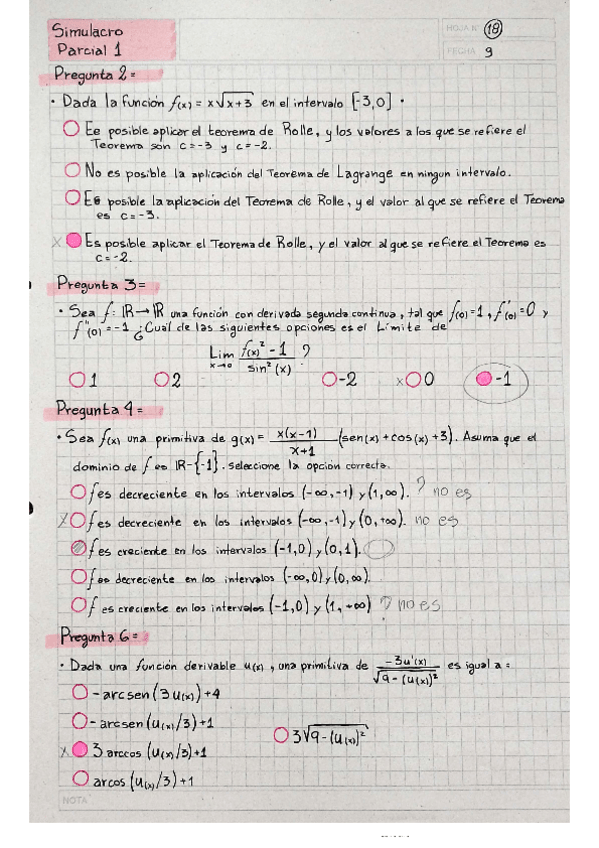 Simulacro
Parcial 1
HOJA N° 18
FECHA 9
Pregunta 2=
• Dada la función f(x) = x√x+3 en el intervalo [-3,0] •
Ee posible aplicar el teorema de Rolle, y los valores a los que se refiere el
Teorema son c=-3 y c=-2.
No es posible la aplicación del Teorema de Lagrange en ningun intervalo.
Es posible la aplicación del Teorema de Rolle, y el valor al que se refiere el Teorema
es c=-3.
x Es posible aplicar el Teorema de Rolle, y el valor al que se refiere el Teorema es
c=-2.
Pregunta 3=
• Sea f: IR→IR una función con derivada segunda continua, tal que f(0)=1, f'(0)=0 y
f''(0)=-1 ¿Cual de las siguientes opciones es el Límite de
Lim x→0 f(x)² - 1 / sin²(x) ?
1 2 -2 x 0 -1
Pregunta 4=
• Sea f(x) una primitiva de g(x) = x(x-1) / x+1 (sen(x) + cos(x) +3). Asuma que el
dominio de f es IR-{-1}. Seleccione la opción correcta.
f es decreciente en los intervalos (-∞,-1) y (1,∞). ? no es
x f es decreciente en los intervalos (-∞,-1) y (0,+∞). no es
f es creciente en los intervalos (-1,0) y (0,1).
f es decreciente en los intervalos (-∞,0) y (0,∞).
f es creciente en los intervalos (-1,0) y (1,+∞) ? no es
Pregunta 6=
• Dada una función derivable u(x), una primitiva de -3u'(x) / √9-(u(x))² es igual a=
-arcsen(3u(x))+4
-arcsen(u(x)/3)+1
3√9-(u(x))²
x 3 arccos (u(x)/3)+1
arcos (u(x)/3)+1
NOTA